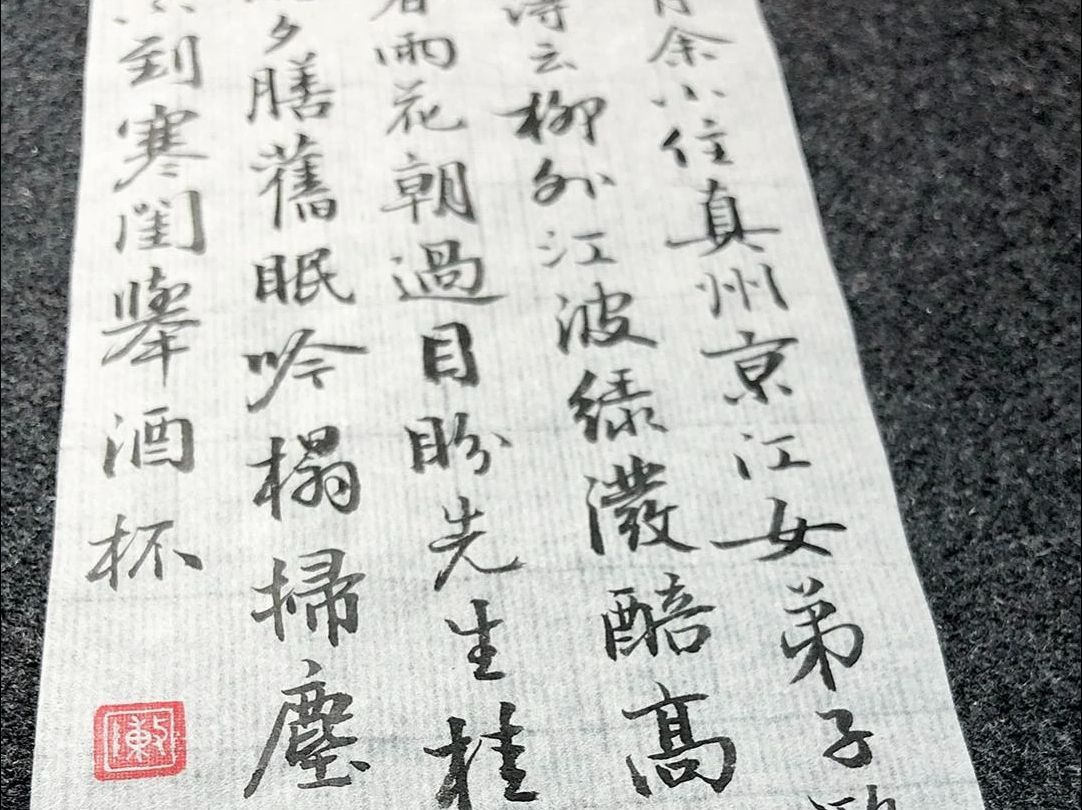 余小住真州京江女弟子
詩云柳外江波綠潑醅高
雨花朝過目盼先生桂
夕膳舊眠吟榻掃塵
到寒閨舉酒杯